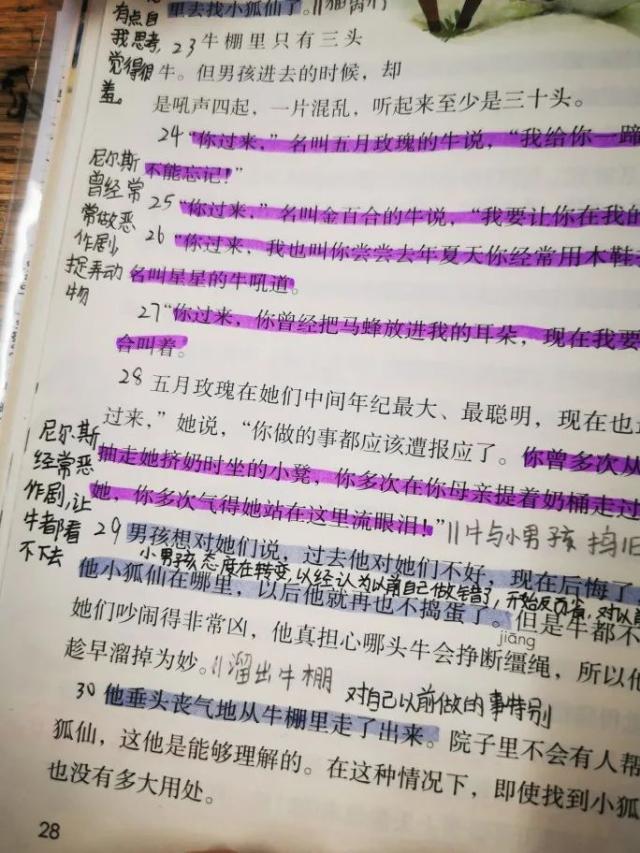 里去找小狐仙了。
有点自
我思考,
觉得很
羞。
23 牛棚里只有三头
牛。但男孩进去的时候，却
是吼声四起，一片混乱，听起来至少是三十头。
24 “你过来，”名叫五月玫瑰的牛说，“我给你一蹄
不能忘记！”
尼尔斯
曾经常
常做恶
作剧
捉弄动
物
25 “你过来，”名叫金百合的牛说，“我要让你在我的
26 “你过来，我也叫你尝尝去年夏天你经常用木鞋
名叫星星的牛吼道。
27 “你过来，你曾经把马蜂放进我的耳朵，现在我要
合叫着。
28 五月玫瑰在她们中间年纪最大、最聪明，现在也
过来，”她说，“你做的事都应该遭报应了。你曾多次从
抽走她挤奶时坐的小凳，你多次在你母亲提着奶桶走过
她，你多次气得她站在这里流眼泪！”||牛与小男孩
尼尔斯
经常恶
作剧,让
牛都看
不下去
29 男孩想对她们说，过去他对她们不好，现在后悔了
小男孩态度在转变,以经认为以前自己做错了,开始反
他小狐仙在哪里，以后他就再也不捣蛋了。但是牛都不
jiāng
她们吵闹得非常凶，他真担心哪头牛会挣断缰绳，所以他
趁早溜掉为妙。||溜出牛棚
对自己以前做的事特别
30 他垂头丧气地从牛棚里走了出来。院子里不会有人帮
狐仙，这他是能够理解的。在这种情况下，即使找到小狐
也没有多大用处。
28